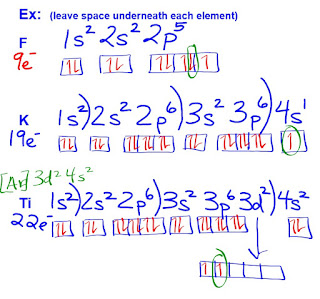 Ex: (leave space underneath each element)
F 1s² 2s² 2p⁵
9e⁻
K 1s²) 2s² 2p⁶) 3s² 3p⁶) 4s¹
19e⁻
[Ar] 3d² 4s²
Ti 1s²) 2s² 2p⁶) 3s² 3p⁶ 3d²) 4s²
22e⁻